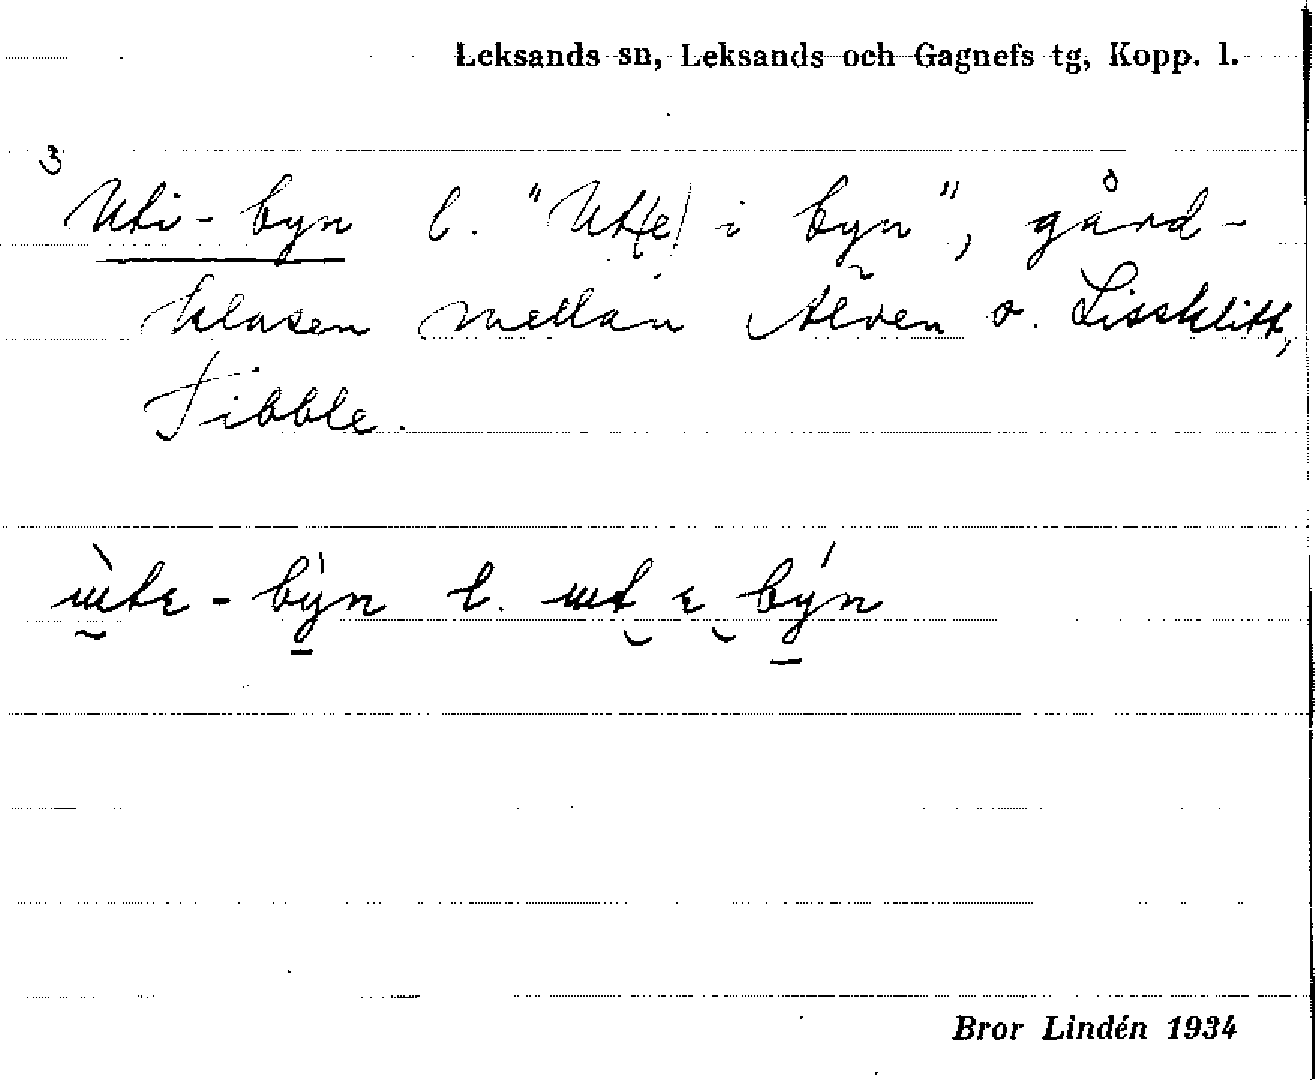 Leksands sn, Leksands och Gagnefs tg, Kopp. l.
3
Uti-byn l. "Ut(e) i byn", gård-
klasen mellan Älven o. Lissklitt,
Tibble.
ɯ̀tɛ-býn l. ɯt ɛ býn
Bror Lindén 1934